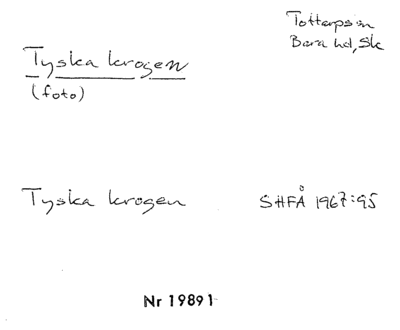 Tottarps sn
Bara hd, Sk
Tyska krogen
(foto)
Tyska krogen SHFÅ 1967:95
Nr 19891